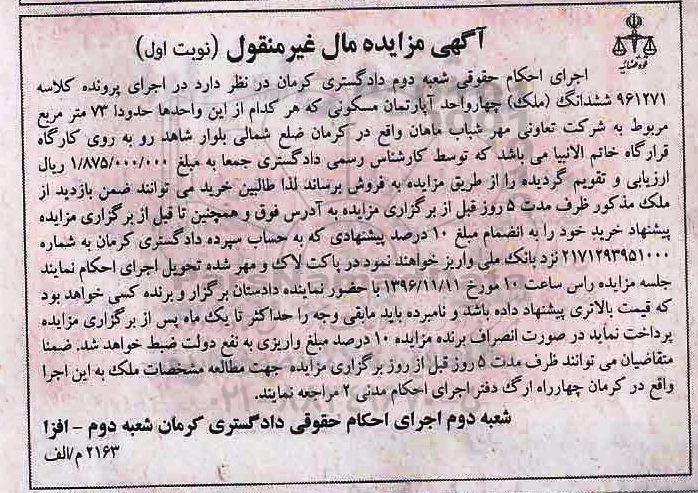 آگهی مزایده مال غیرمنقول (نوبت اول)
قوه قضائیه
اجرای احکام حقوقی شعبه دوم دادگستری کرمان در نظر دارد در اجرای پرونده کلاسه
۹۶۱۲۷۱ ششدانگ (ملک) چهارواحد آپارتمان مسکونی که هر کدام از این واحدها حدودا ۷۳ متر مربع
مربوط به شرکت تعاونی مهر شباب ماهان واقع در کرمان ضلع شمالی بلوار شاهد رو به روی کارگاه
قرارگاه خاتم الانبیا می باشد که توسط کارشناس رسمی دادگستری جمعا به مبلغ ۱/۸۷۵/۰۰۰/۰۰۰ ریال
ارزیابی و تقویم گردیده را از طریق مزایده به فروش برساند لذا طالبین خرید می توانند ضمن بازدید از
ملک مذکور ظرف مدت ۵ روز قبل از برگزاری مزایده به آدرس فوق و همچنین تا قبل از برگزاری مزایده
پیشنهاد خرید خود را به انضمام مبلغ ۱۰ درصد پیشنهادی که به حساب سپرده دادگستری کرمان به شماره
۲۱۷۱۲۹۳۹۵۱۰۰۰ نزد بانک ملی واریز خواهند نمود در پاکت لاک و مهر شده تحویل اجرای احکام نمایند
جلسه مزایده راس ساعت ۱۰ مورخ ۱۳۹۶/۱۱/۱۱ با حضور نماینده دادستان برگزار و برنده کسی خواهد بود
که قیمت بالاتری پیشنهاد داده باشد و نامبرده باید مابقی وجه را حداکثر تا یک ماه پس از برگزاری مزایده
پرداخت نماید در صورت انصراف برنده مزایده ۱۰ درصد مبلغ واریزی به نفع دولت ضبط خواهد شد. ضمنا
متقاضیان می توانند ظرف مدت ۵ روز قبل از روز برگزاری مزایده جهت مطالعه مشخصات ملک به این اجرا
واقع در کرمان چهارراه ارگ دفتر اجرای احکام مدنی ۲ مراجعه نمایند.
شعبه دوم اجرای احکام حقوقی دادگستری کرمان شعبه دوم - افزا
۲۱۶۳ م/الف